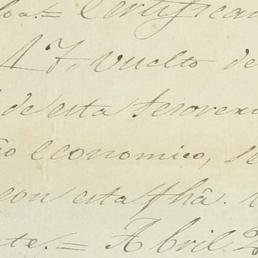 Certifica
17, vuelto de
de esta tesorer
economico, se
con esta fhâ.
te.= Abril 2